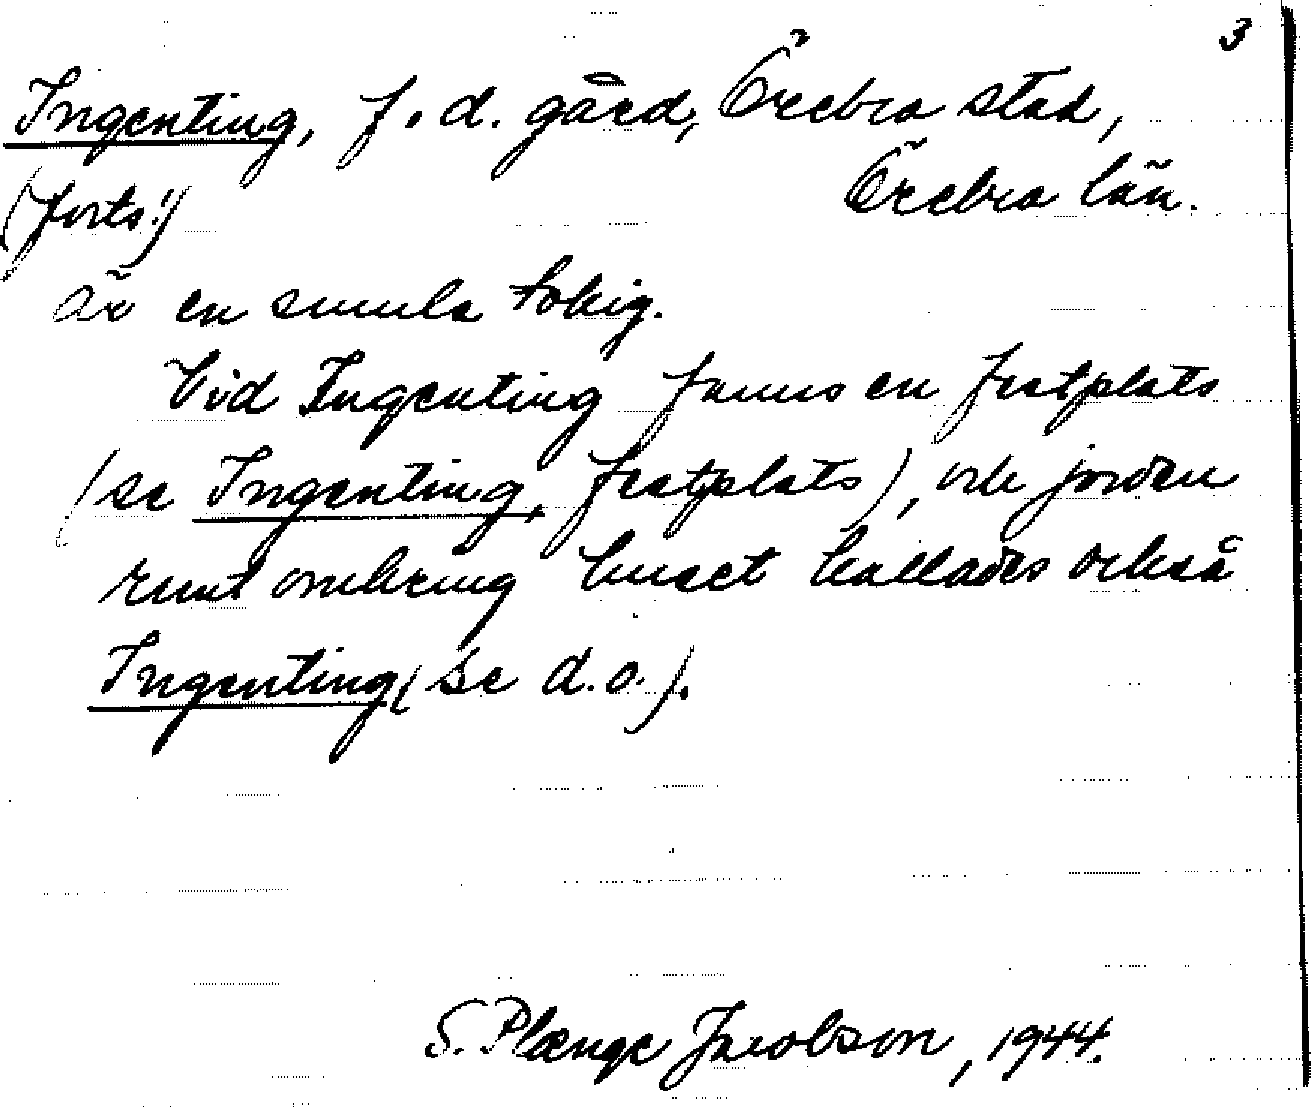 3
Ingenting, f.d. gård, Örebro stad,
Örebro län.
(forts.)
är en smula tokig.
Vid Ingenting fanns en festplats
(se Ingenting, festplats), och jorden
runt omkring huset kallades också
Ingenting (se d.o.).
S. Plænge Jacobson, 1944.